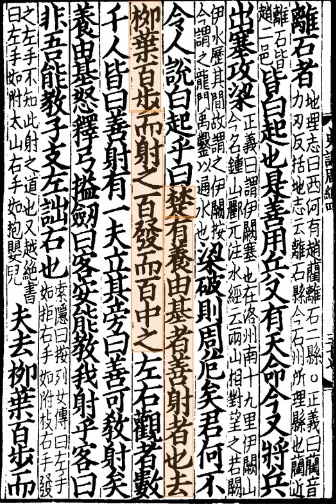 離石者
地理志曰西河有趙藺離石二縣 正義曰藺音
力刃反括地志云離石縣今石州所理縣也藺近
離石皆
趙二邑
皆白起也是善用兵又有天命今又將兵
出塞攻梁
正義曰謂伊闕塞也在洛州南十九里伊闕山
今名鍾山酈元注水經云兩山相對望之若闕
伊水歷其閒故謂之伊闕按
今謂之龍門禹鑿以通水也
梁破則周危矣君何不
令人說白起乎曰楚有養由基者善射者也去
柳葉百步而射之百發而百中之左右觀者數
千人皆曰善射有一夫立其旁曰善可教射矣
養由基怒釋弓搤劍曰客安能教我射乎客曰
非吾能教子支左詘右也
索隱曰按列女傳曰左手
如拒右手如附枝右手發
之左手不知此射之道也又越絕書
曰左手如附太山右手如抱嬰兒
夫去柳葉百步而